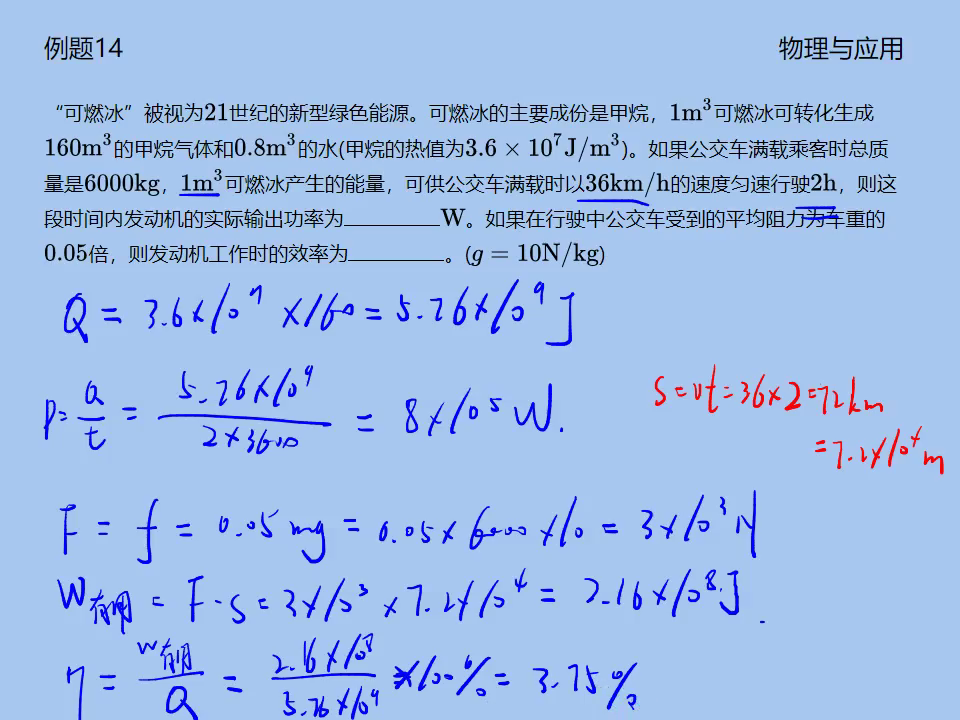 例题14
物理与应用
“可燃冰”被视为21世纪的新型绿色能源。可燃冰的主要成份是甲烷，1m³可燃冰可转化生成
160m³的甲烷气体和0.8m³的水(甲烷的热值为3.6 × 10⁷J/m³)。如果公交车满载乘客时总质
量是6000kg，1m³可燃冰产生的能量，可供公交车满载时以36km/h的速度匀速行驶2h，则这
段时间内发动机的实际输出功率为________W。如果在行驶中公交车受到的平均阻力为车重的
0.05倍，则发动机工作时的效率为________。(g = 10N/kg)
Q = 3.6×10⁷ ×160 = 5.76×10⁹ J
P = Q/t = 5.76×10⁹/2×3600 = 8×10⁵ W.
S = vt = 36×2 = 72km
= 7.2×10⁴ m
F = f = 0.05mg = 0.05×6000×10 = 3×10³ N
W有用 = F·s = 3×10³ × 7.2×10⁴ = 2.16×10⁸ J.
η = W有用/Q = 2.16×10⁸/5.76×10⁹ ×100% = 3.75%